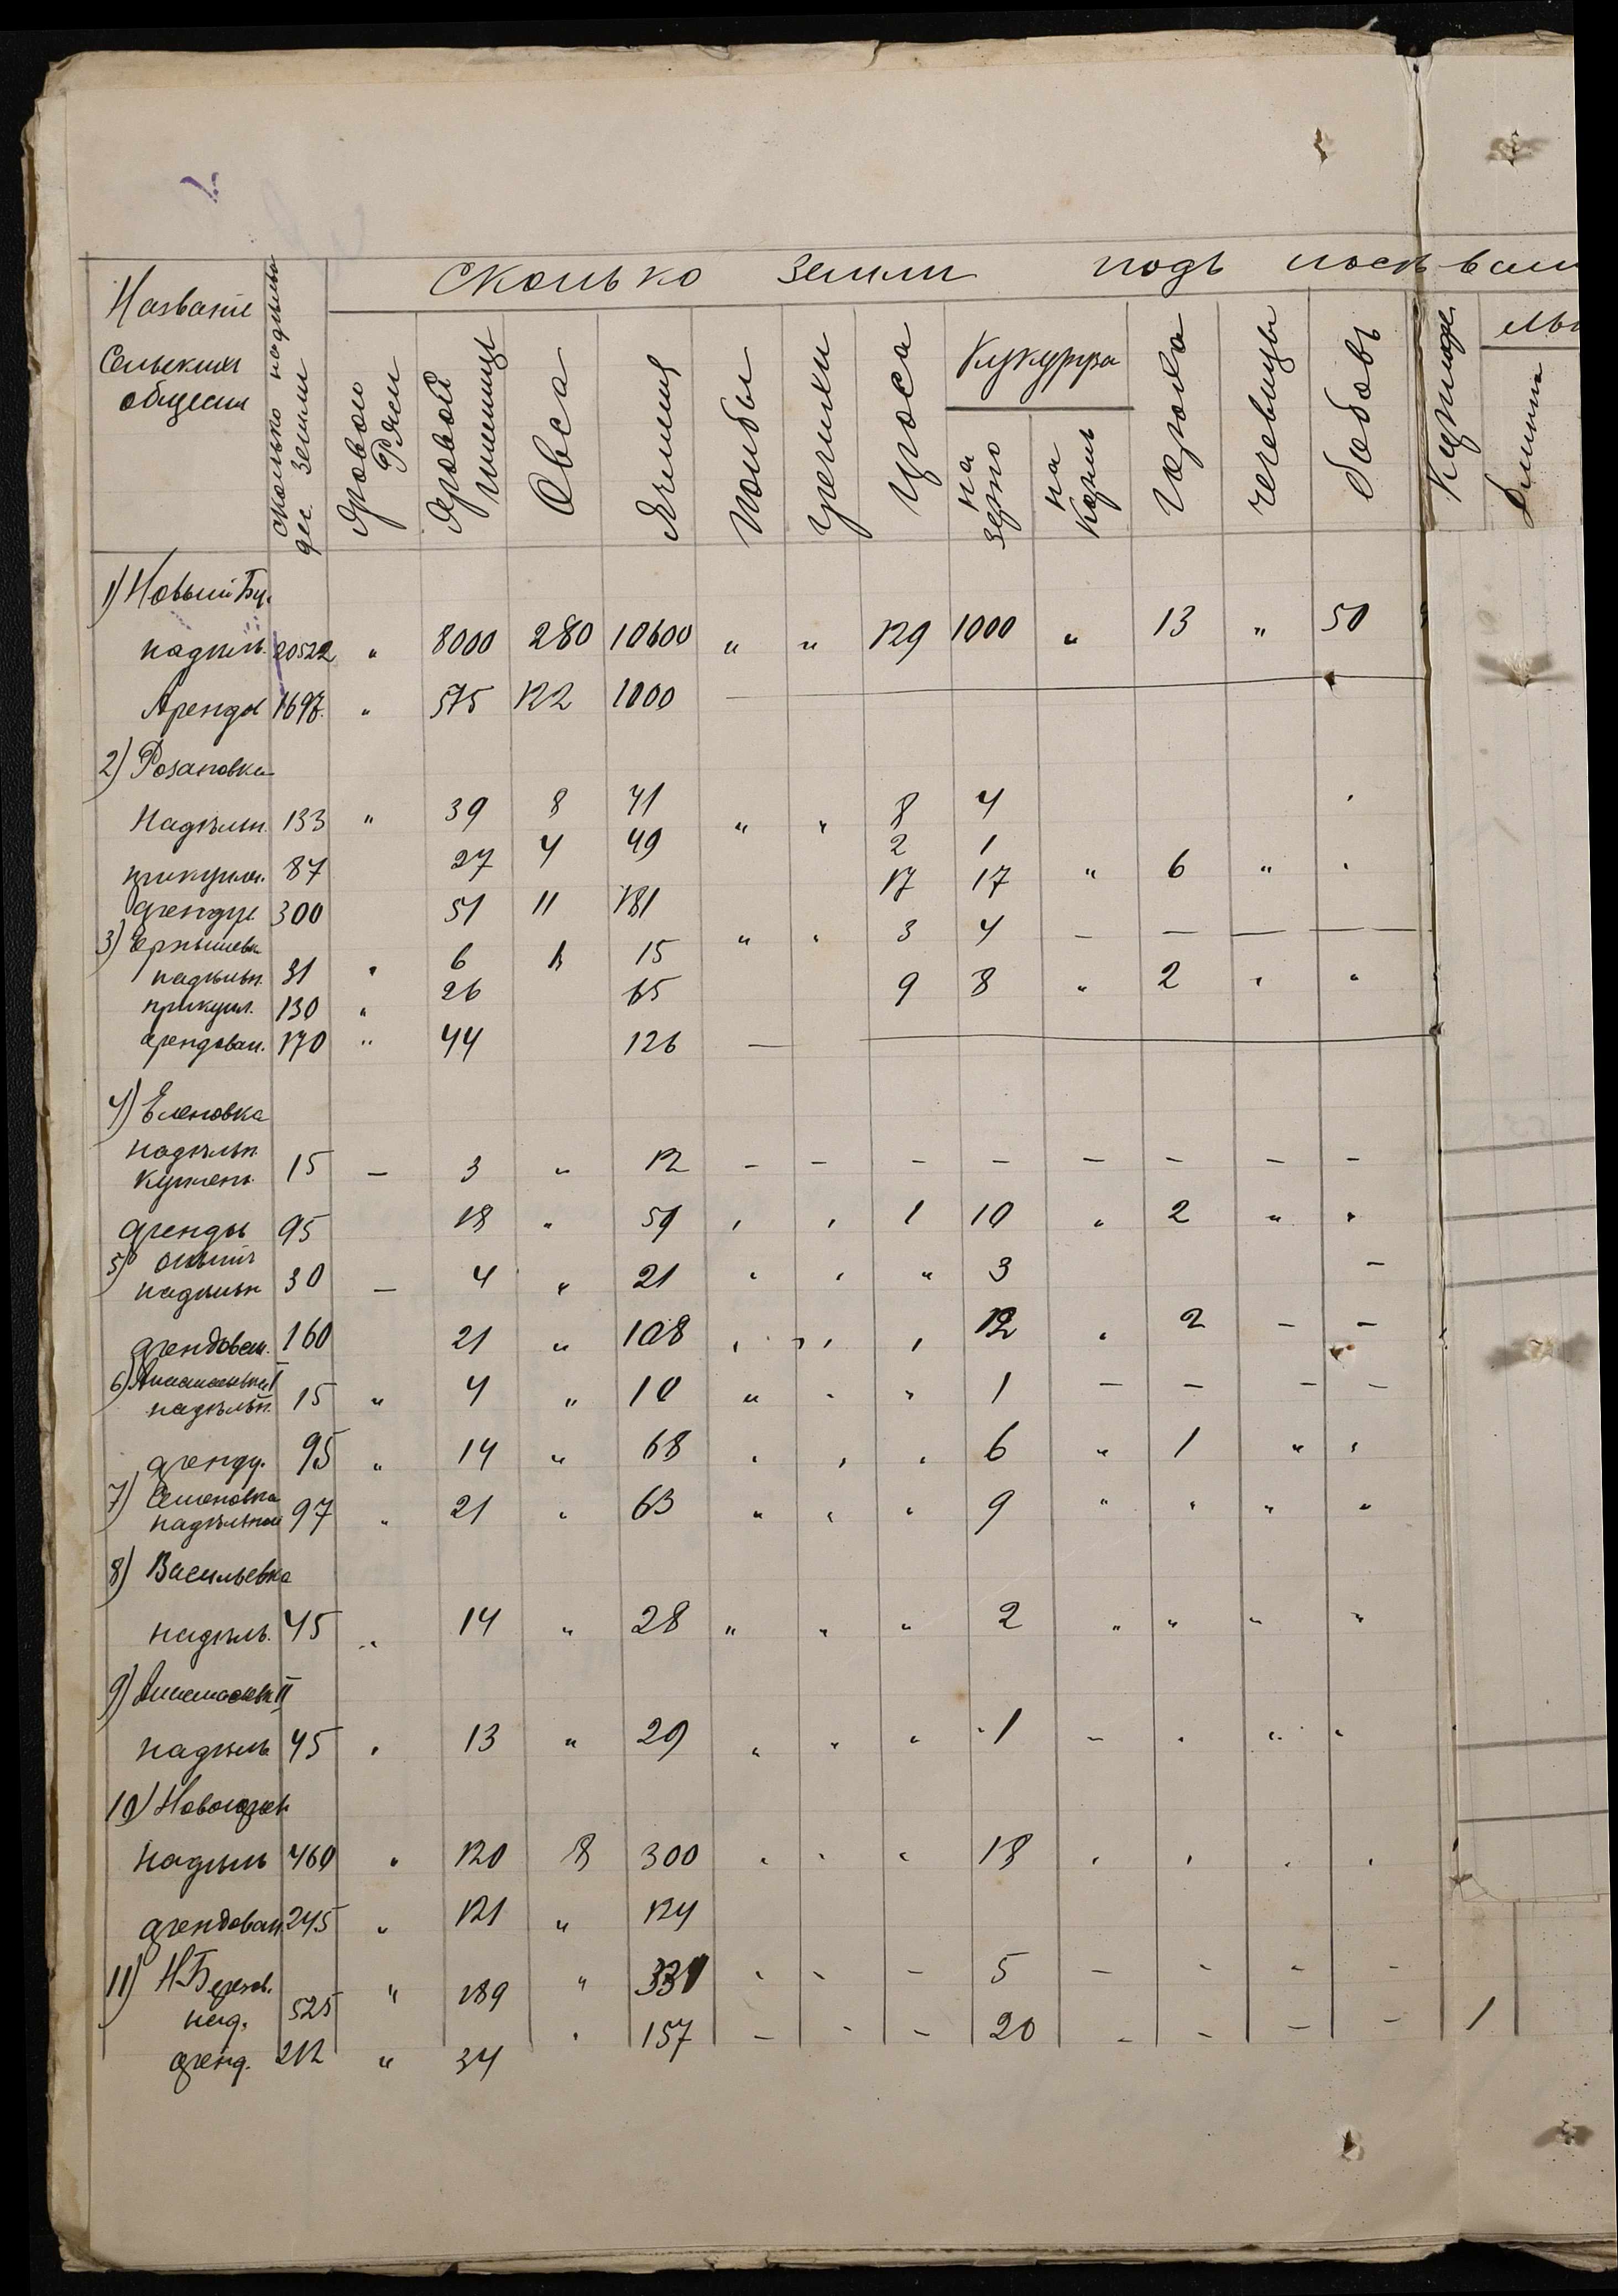 Сколько земли подъ посѣвами
Названіе
Сельскихъ
обществ
сколько надѣльн
дес. земли
Яровой
Ржи
Яровой
пшеницы
Овса
Ячменя
Полбы
Гречихи
Проса
Кукуруза
на
зерно
на
кормъ
Гороха
чечевицы
бобовъ
1) Новый Буг.
надѣльн. 20522 " 8000 280 10600 " " 129 1000 " 13 " 50
Аренды 1697. " 575 122 1000 —
2) Розановка
Надѣльн. 133 " 39 8 71 " " 8 4
прикупл. 87 27 4 49 2 1
арендуе. 300 51 11 181 17 17 " 6 " "
3)
надѣльн. 31 " 6 15 " " 3 4 — — — — —
прикупл. 130 " 26 65 9 8 " 2 " "
арендован. 170 " 44 126 — —
4) Еленовка
надѣльн.
15 — 3 " 12 — — — — — — — —
аренды 95 18 " 59 " " 1 10 " 2 " "
5)
надѣльн 30 — 4 " 21 " " " 3 —
арендован. 160 21 " 108 " " " 12 " 2 — —
6) I
надѣльн. 15 " 4 " 10 " " " 1 — — — —
аренду. 95 " 14 " 68 " " " 6 " 1 " "
7) Семеновка
надѣльной 97 " 21 " 63 " " " 9 " " " "
8) Васильевка
надѣль. 45 " 14 " 28 " " " 2 " " " "
9) II
надѣль 45 " 13 " 29 " " " 1 — " " "
10)
надѣль 460 " 120 8 300 " " " 18 " " " "
арендован 245 " 121 " 124
11) Н-Березов.
над. 525 " 189 " 331 " " — 5 — — — —
аренд. 212 " 34 " 157 — — — 20 — — — — 1